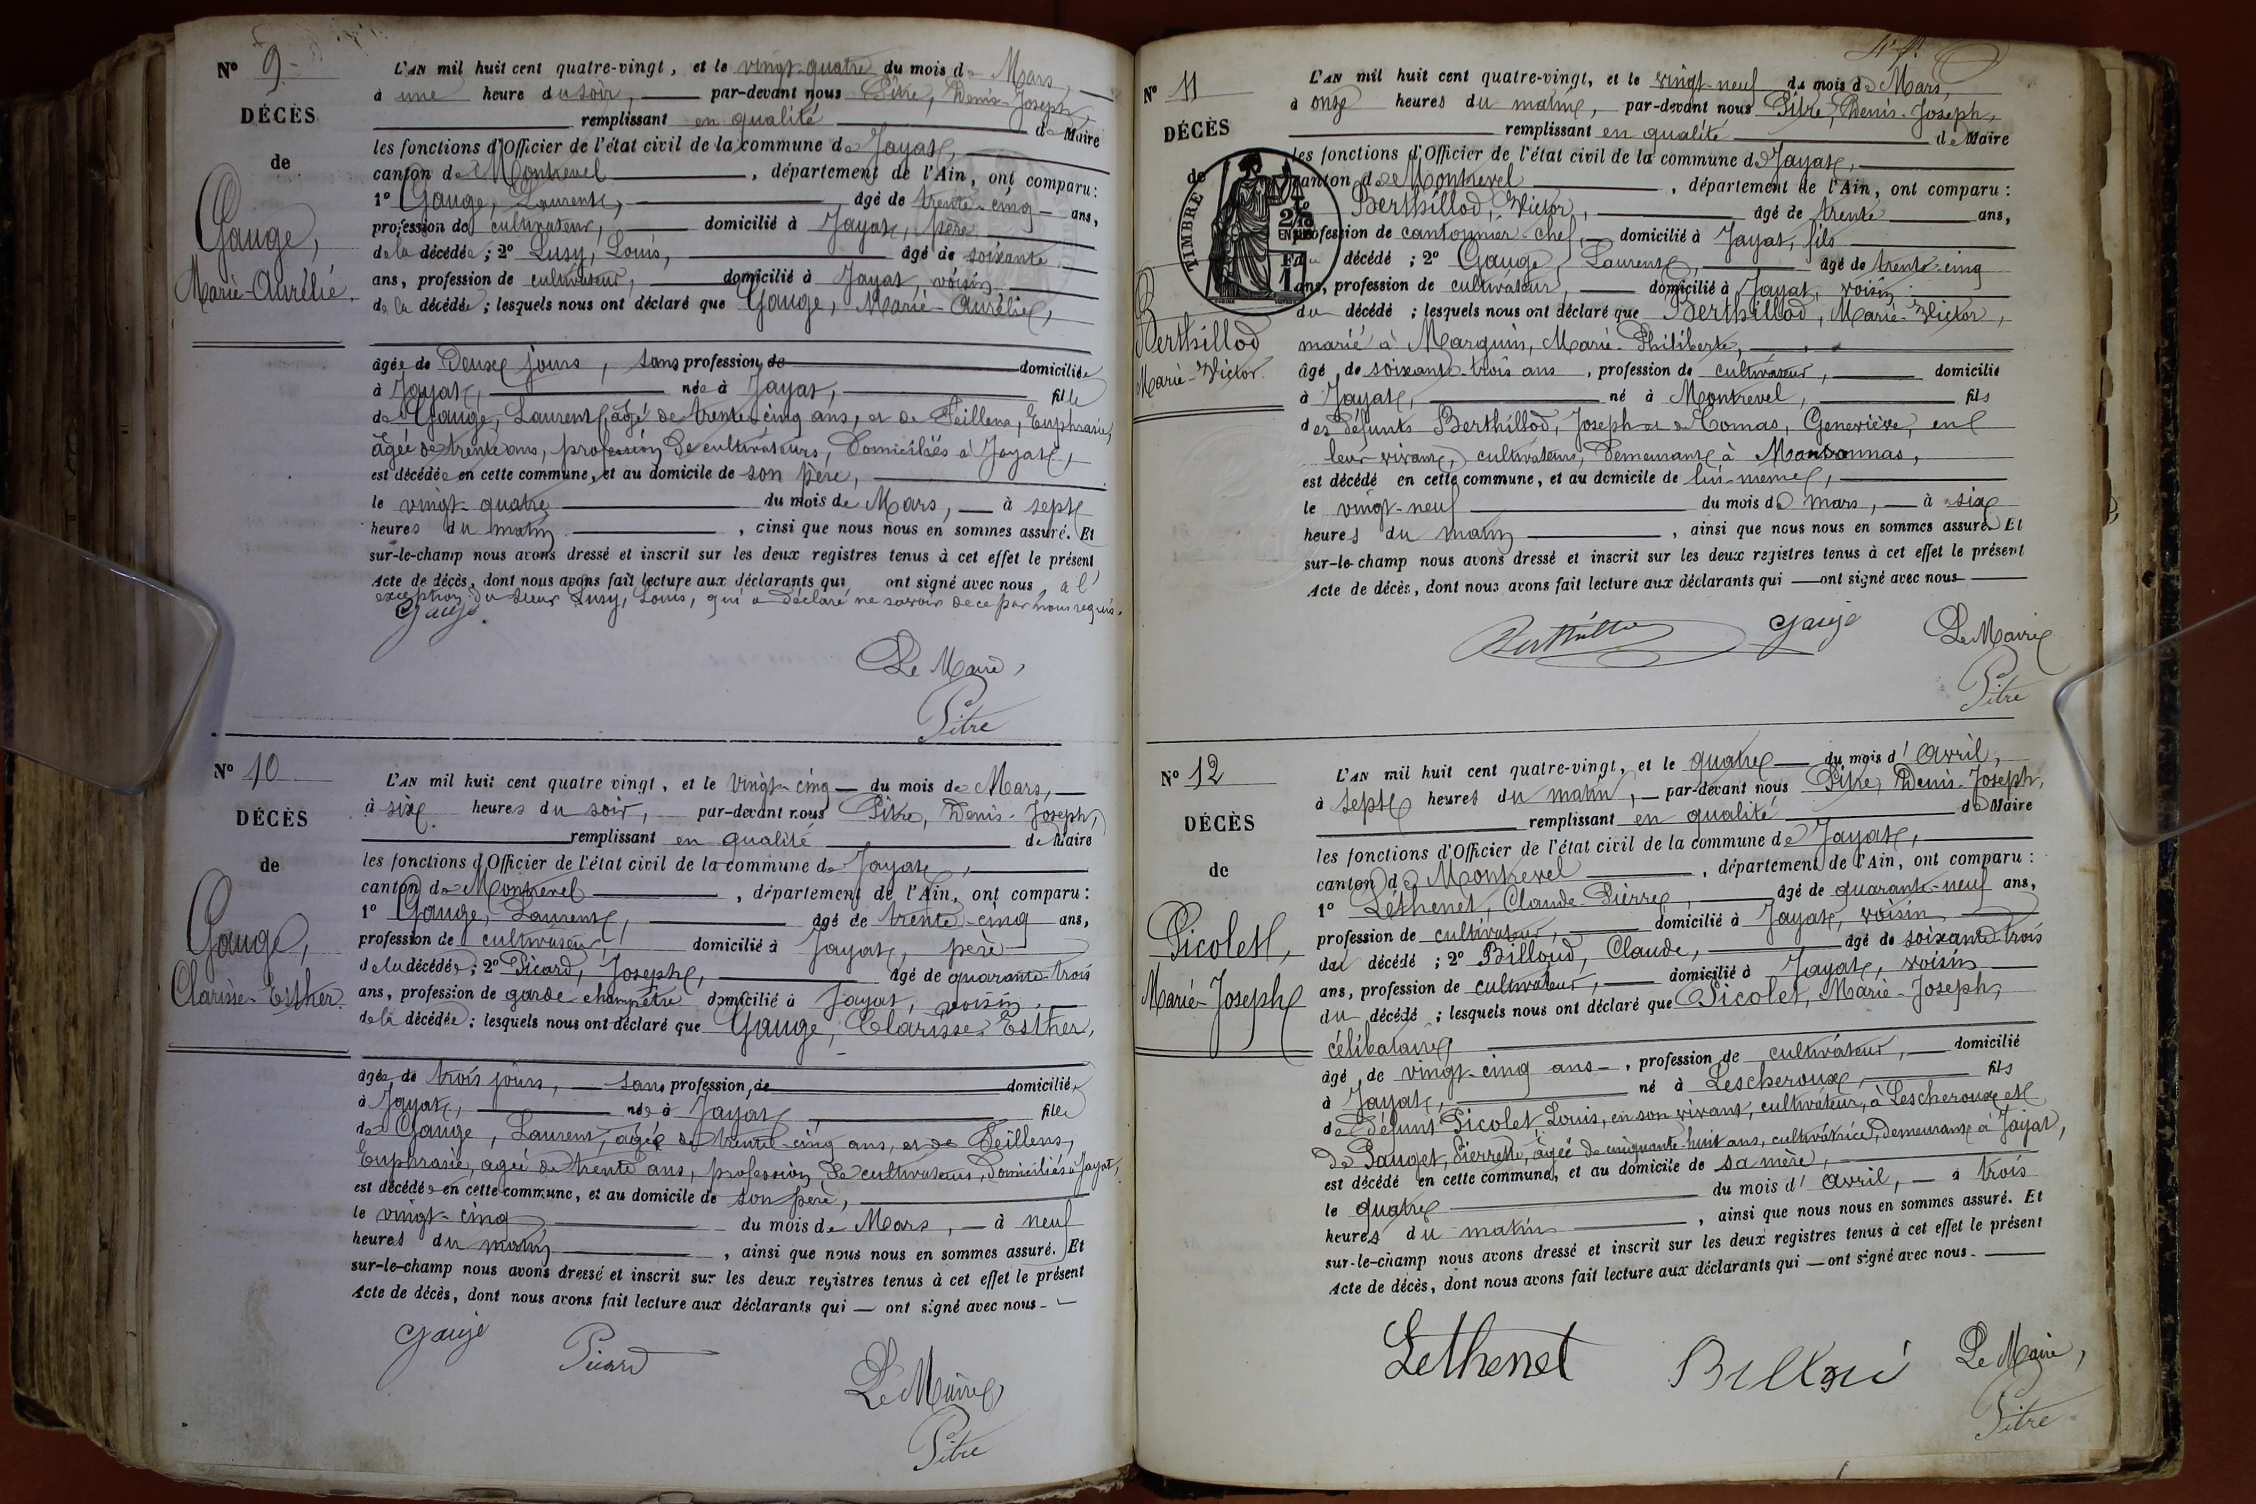 N° 9
DÉCÈS
de
Gauge,
Marie-Aurélie.
L'AN mil huit cent quatre-vingt, et le vingt-quatre du mois de Mars,
à une heure du soir, par-devant nous Pitre, Denis-Joseph,
remplissant en qualité de Maire
les fonctions d'Officier de l'état civil de la commune de Jayat,
canton de Montrevel, département de l'Ain, ont comparu :
1° Gauge, Laurent, âgé de trente-cinq ans,
profession de cultivateur, domicilié à Jayat, père
de la décédée ; 2° Lusy, Louis, âgé de soixante
ans, profession de cultivateur, domicilié à Jayat, voisin
de la décédée ; lesquels nous ont déclaré que Gauge, Marie-Aurélie,
âgée de Deux jours, sans profession, de domiciliée
à Jayat, née à Jayat, fille
de Gauge, Laurent, âgé de trente-cinq ans, et de Feillens, Euphrasie,
âgée de trente ans, profession de cultivateurs, Domiciliés à Jayat,
est décédée en cette commune, et au domicile de son père,
le vingt-quatre du mois de Mars, à sept
heures du matin, ainsi que nous nous en sommes assuré. Et
sur-le-champ nous avons dressé et inscrit sur les deux registres tenus à cet effet le présent
Acte de décès, dont nous avons fait lecture aux déclarants qui ont signé avec nous, à l'
exception du sieur Lusy, Louis, qui a déclaré ne savoir de ce par nous requis.
Gauge
Le Maire,
Pitre
N° 10
DÉCÈS
de
Gauge,
Clarisse-Esther.
L'AN mil huit cent quatre vingt, et le Vingt-cinq du mois de Mars,
à six heures du soir, par-devant nous Pitre, Denis-Joseph,
remplissant en qualité de Maire
les fonctions d'Officier de l'état civil de la commune de Jayat,
canton de Montrevel, département de l'Ain, ont comparu :
1° Gauge, Laurent, âgé de trente-cinq ans,
profession de cultivateur domicilié à Jayat, père
de la décédée ; 2° Picard, Joseph, âgé de quarante-trois
ans, profession de garde champêtre domicilié à Jayat, voisin
de la décédée ; lesquels nous ont déclaré que Gauge, Clarisse-Esther,
âgée de trois jours, sans profession, de domiciliée
à Jayat, née à Jayat fille
de Gauge, Laurent, âgé de trente-cinq ans, et de Feillens,
Euphrasie, agée de trente ans, profession de cultivateurs, Domiciliés à Jayat,
est décédée en cette commune, et au domicile de son père,
le vingt-cinq du mois de Mars, à neuf
heures du matin, ainsi que nous nous en sommes assuré. Et
sur-le-champ nous avons dressé et inscrit sur les deux registres tenus à cet effet le présent
Acte de décès, dont nous avons fait lecture aux déclarants qui ont signé avec nous
Gauge
Picard
Le Maire,
Pitre
N° 11
DÉCÈS
de
Berthillod
Marie-Victor.
TIMBRE
L'AN mil huit cent quatre-vingt, et le vingt-neuf du mois de Mars,
à onze heures du matin, par-devant nous Pitre, Denis-Joseph,
remplissant en qualité de Maire
les fonctions d'Officier de l'état civil de la commune de Jayat,
canton de Montrevel, département de l'Ain, ont comparu :
Berthillod, Victor, âgé de trente ans,
profession de cantonnier-chef, domicilié à Jayat, fils
du décédé ; 2° Gauge, Laurent, âgé de trente-cinq
ans, profession de cultivateur, domicilié à Jayat, voisin
du décédé ; lesquels nous ont déclaré que Berthillod, Marie-Victor,
marié à Marguin, Marie-Philiberte,
âgé de soixante-trois ans, profession de cultivateur, domicilié
à Jayat, né à Montrevel, fils
des Défunts Berthillod, Joseph et de Comas, Geneviève, en
leur vivant, cultivateurs, Demeurant à Marsonnas,
est décédé en cette commune, et au domicile de lui-même,
le vingt-neuf du mois de mars, à six
heures du matin, ainsi que nous nous en sommes assuré. Et
sur-le-champ nous avons dressé et inscrit sur les deux registres tenus à cet effet le présent
Acte de décès, dont nous avons fait lecture aux déclarants qui ont signé avec nous
Berthillod
Gauge
Le Maire
Pitre
N° 12
DÉCÈS
de
Picolet,
Marie-Joseph
L'AN mil huit cent quatre-vingt, et le quatre du mois d'Avril,
à sept heures du matin, par-devant nous Pitre, Denis-Joseph,
remplissant en qualité de Maire
les fonctions d'Officier de l'état civil de la commune de Jayat,
canton de Montrevel, département de l'Ain, ont comparu :
1° Léthenet, Claude-Pierre, âgé de quarante-neuf ans,
profession de cultivateur, domicilié à Jayat, voisin
du décédé ; 2° Billoud, Claude, âgé de soixante-trois
ans, profession de cultivateur, domicilié à Jayat, voisin
du décédé ; lesquels nous ont déclaré que Picolet, Marie-Joseph,
célibataire
âgé de vingt-cinq ans, profession de cultivateur, domicilié
à Jayat, né à Lescheroux, fils
de défunt Picolet, Louis, en son vivant, cultivateur, à Lescheroux et
de Pauget, Pierrette, âgée de cinquante-huit ans, cultivatrice, demeurant à Jayat,
est décédé en cette commune, et au domicile de sa mère,
le quatre du mois d'Avril, à trois
heures du matin, ainsi que nous nous en sommes assuré. Et
sur-le-champ nous avons dressé et inscrit sur les deux registres tenus à cet effet le présent
Acte de décès, dont nous avons fait lecture aux déclarants qui ont signé avec nous.
Lethenet
Le Maire,
Pitre